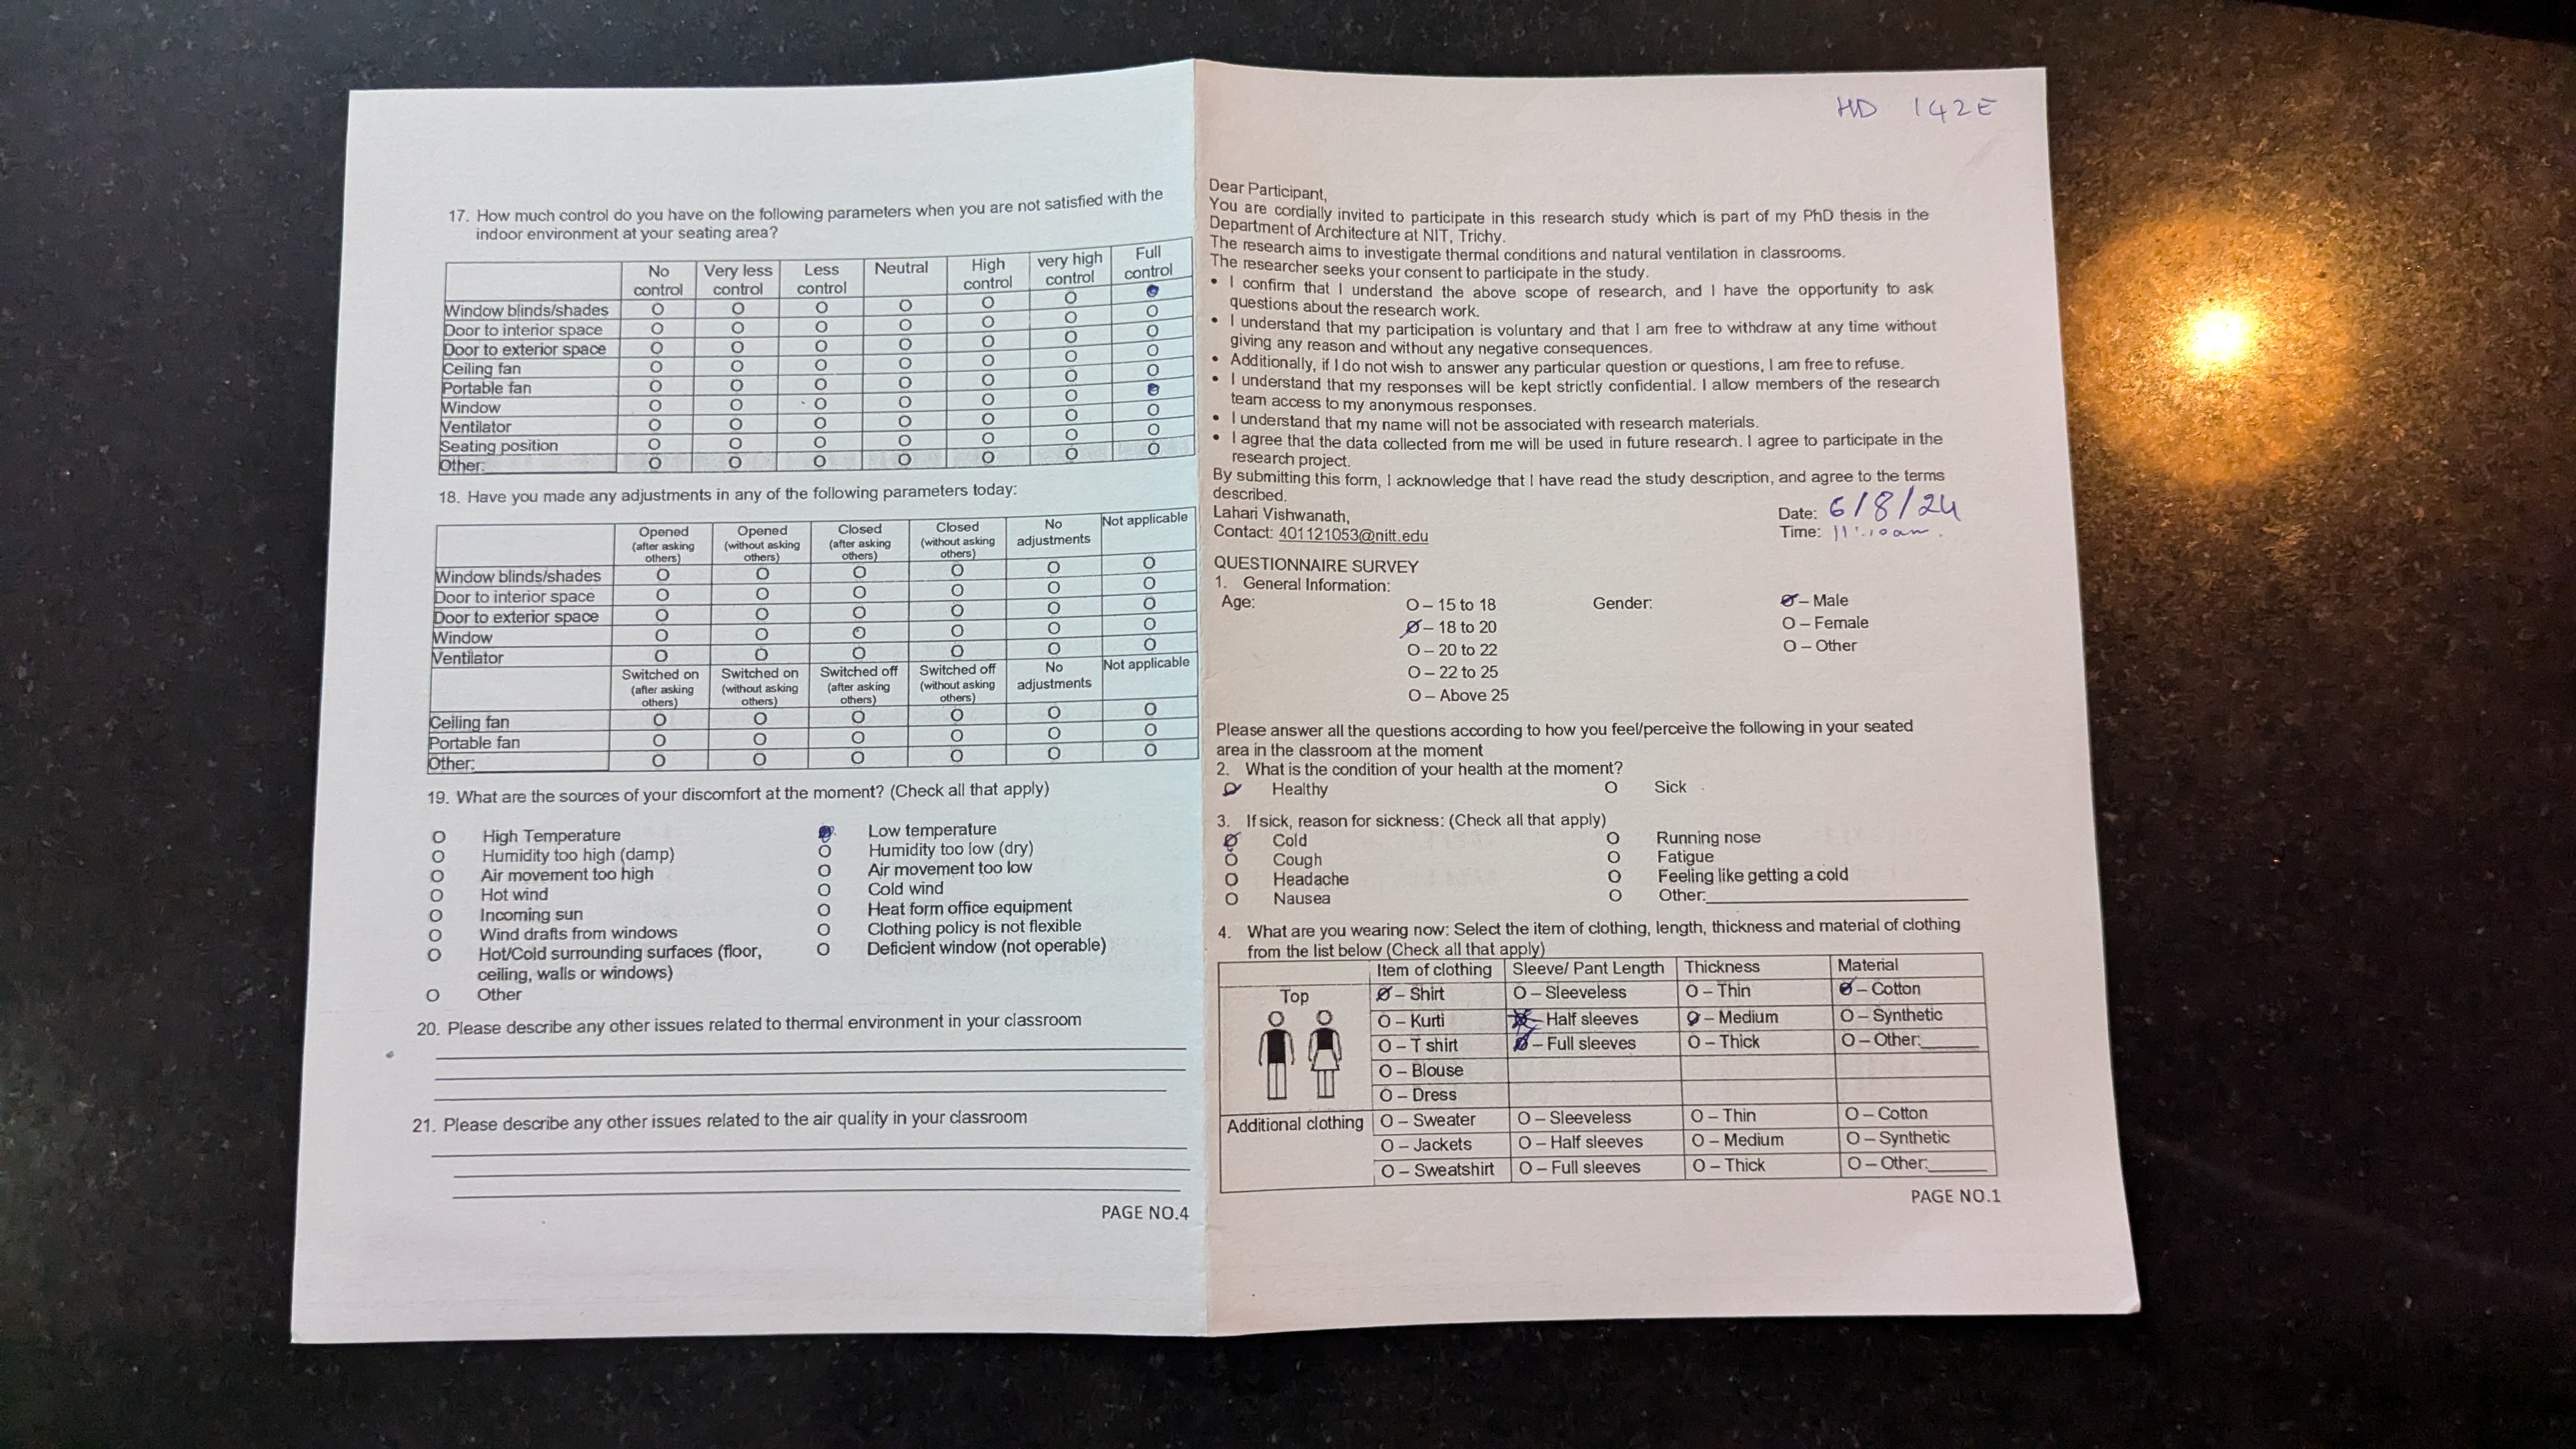 17. How much control do you have on the following parameters when you are not satisfied with the
indoor environment at your seating area?
No control Very less control Less control Neutral High control very high control Full control
Window blinds/shades O O O O O O
Door to interior space O O O O O O O
Door to exterior space O O O O O O O
Ceiling fan O O O O O O O
Portable fan O O O O O O O
Window O O O O O O
Ventilator O O O O O O O
Seating position O O O O O O O
Other: O O O O O O O
18. Have you made any adjustments in any of the following parameters today:
Opened (after asking others) Opened (without asking others) Closed (after asking others) Closed (without asking others) No adjustments Not applicable
Window blinds/shades O O O O O O
Door to interior space O O O O O O
Door to exterior space O O O O O O
Window O O O O O O
Ventilator O O O O O O
Switched on (after asking others) Switched on (without asking others) Switched off (after asking others) Switched off (without asking others) No adjustments Not applicable
Ceiling fan O O O O O O
Portable fan O O O O O O
Other: O O O O O O
19. What are the sources of your discomfort at the moment? (Check all that apply)
O High Temperature Low temperature
O Humidity too high (damp) O Humidity too low (dry)
O Air movement too high O Air movement too low
O Hot wind O Cold wind
O Incoming sun O Heat form office equipment
O Wind drafts from windows O Clothing policy is not flexible
O Hot/Cold surrounding surfaces (floor, O Deficient window (not operable)
ceiling, walls or windows)
O Other
20. Please describe any other issues related to thermal environment in your classroom
21. Please describe any other issues related to the air quality in your classroom
PAGE NO.4
HD 142E
Dear Participant,
You are cordially invited to participate in this research study which is part of my PhD thesis in the
Department of Architecture at NIT, Trichy.
The research aims to investigate thermal conditions and natural ventilation in classrooms.
The researcher seeks your consent to participate in the study.
• I confirm that I understand the above scope of research, and I have the opportunity to ask
questions about the research work.
• I understand that my participation is voluntary and that I am free to withdraw at any time without
giving any reason and without any negative consequences.
• Additionally, if I do not wish to answer any particular question or questions, I am free to refuse.
• I understand that my responses will be kept strictly confidential. I allow members of the research
team access to my anonymous responses.
• I understand that my name will not be associated with research materials.
• I agree that the data collected from me will be used in future research. I agree to participate in the
research project.
By submitting this form, I acknowledge that I have read the study description, and agree to the terms
described.
Lahari Vishwanath,
Contact: 401121053@nitt.edu
Date: 6/8/24
Time: 11:10am.
QUESTIONNAIRE SURVEY
1. General Information:
Age: O – 15 to 18 Gender: O – Male
O – 18 to 20 O – Female
O – 20 to 22 O – Other
O – 22 to 25
O – Above 25
Please answer all the questions according to how you feel/perceive the following in your seated
area in the classroom at the moment
2. What is the condition of your health at the moment?
O Healthy O Sick
3. If sick, reason for sickness: (Check all that apply)
O Cold O Running nose
O Cough O Fatigue
O Headache O Feeling like getting a cold
O Nausea O Other:
4. What are you wearing now: Select the item of clothing, length, thickness and material of clothing
from the list below (Check all that apply)
Item of clothing Sleeve/ Pant Length Thickness Material
Top O – Shirt O – Sleeveless O – Thin O – Cotton
O – Kurti O – Half sleeves O – Medium O – Synthetic
O – T shirt O – Full sleeves O – Thick O – Other:
O – Blouse
O – Dress
Additional clothing O – Sweater O – Sleeveless O – Thin O – Cotton
O – Jackets O – Half sleeves O – Medium O – Synthetic
O – Sweatshirt O – Full sleeves O – Thick O – Other:
PAGE NO.1